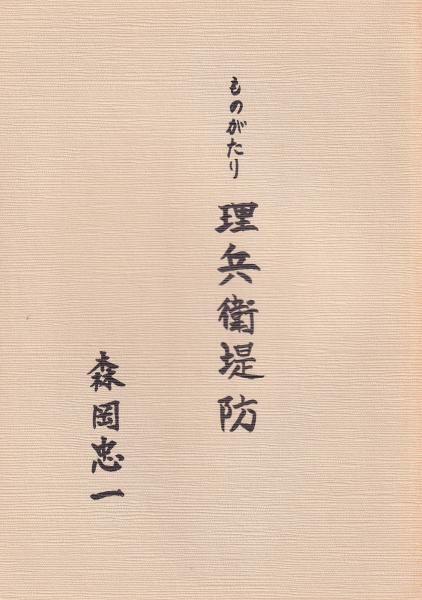 ものがたり 理兵衛堤防
森岡忠一